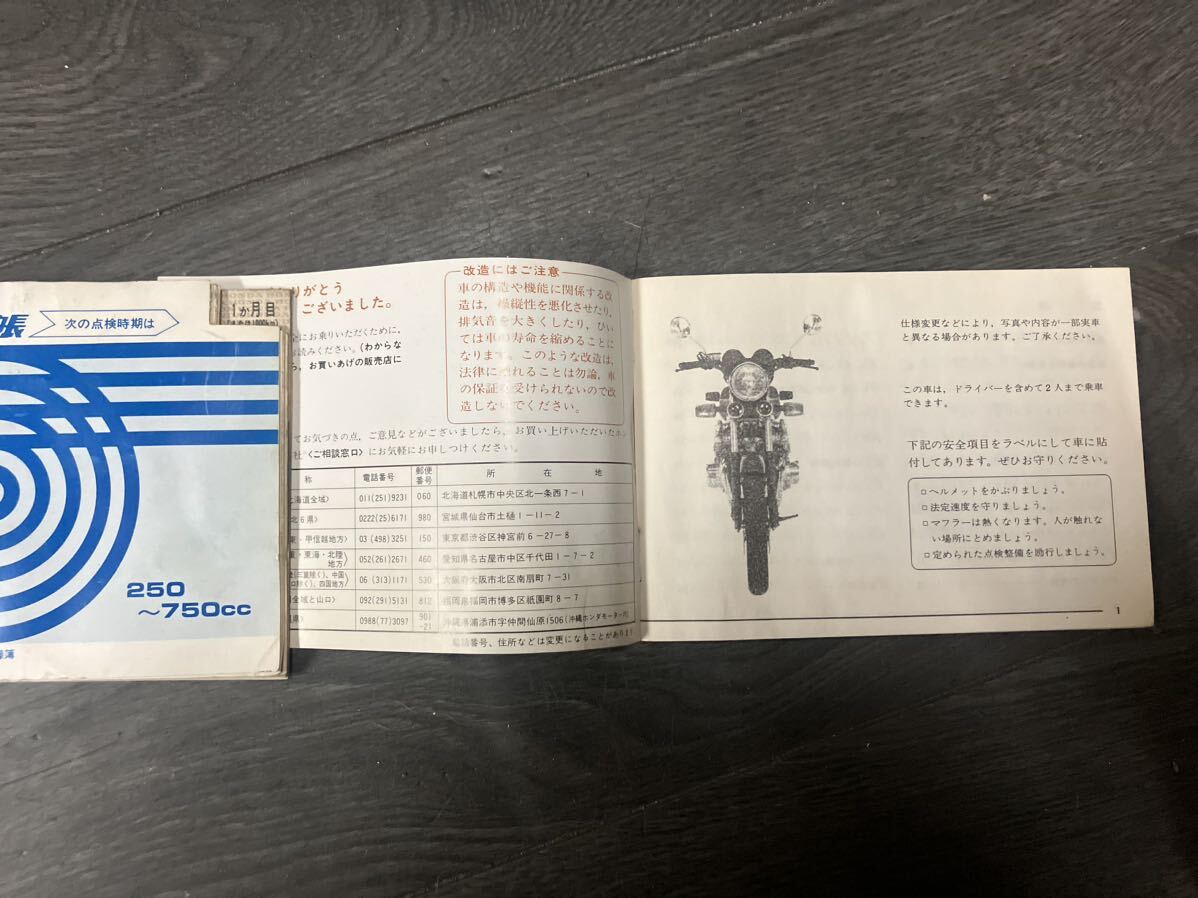 帳
次の点検時期は
1か月目
250
～750cc
りがとう
ございました。
にお乗りいただくために,
読みください。(わからな
ら, お買いあげの販売店に
改造にはご注意
車の構造や機能に関係する改
造は, 操縦性を悪化させたり,
排気音を大きくしたり, ひい
ては車の寿命を縮めることに
なります。このような改造は,
法律に触れることは勿論, 車
の保証を受けられないので改
造しないでください。
てお気づきの点, ご意見などがございましたら, お買い上げいただいたホン
社〈ご相談窓口〉にお気軽にお申しつけください。
称 電話番号 郵便番号 所在地
海道全域〉 011(251)9231 060 北海道札幌市中央区北一条西7-1
北6県〉 0222(25)6171 980 宮城県仙台市土樋1-11-2
東・甲信越地方〉 03(498)3251 150 東京都渋谷区神宮前6-27-8
・東海・北陸地方〉 052(261)2671 460 愛知県名古屋市中区千代田1-7-2
除く), 中国
除く), 四国地方〉 06(313)1171 530 大阪府大阪市北区南扇町7-31
全域と山口〉 092(291)5131 812 福岡県福岡市博多区祇園町8-7
県〉 0988(77)3097 901-21 沖縄県浦添市字仲間仙原1506(沖縄ホンダモーター
電話番号, 住所などは変更になることがあります
仕様変更などにより, 写真や内容が一部実車
と異なる場合があります。ご了承ください。
この車は, ドライバーを含めて2人まで乗車
できます。
下記の安全項目をラベルにして車に貼
付してあります。ぜひお守りください。
□ヘルメットをかぶりましょう。
□法定速度を守りましょう。
□マフラーは熱くなります。人が触れな
い場所にとめましょう。
□定められた点検整備を励行しましょう。
1